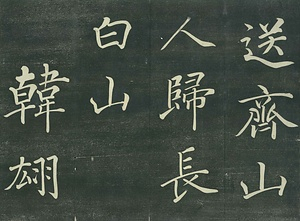 送齊山
人歸長
白山
韓翃